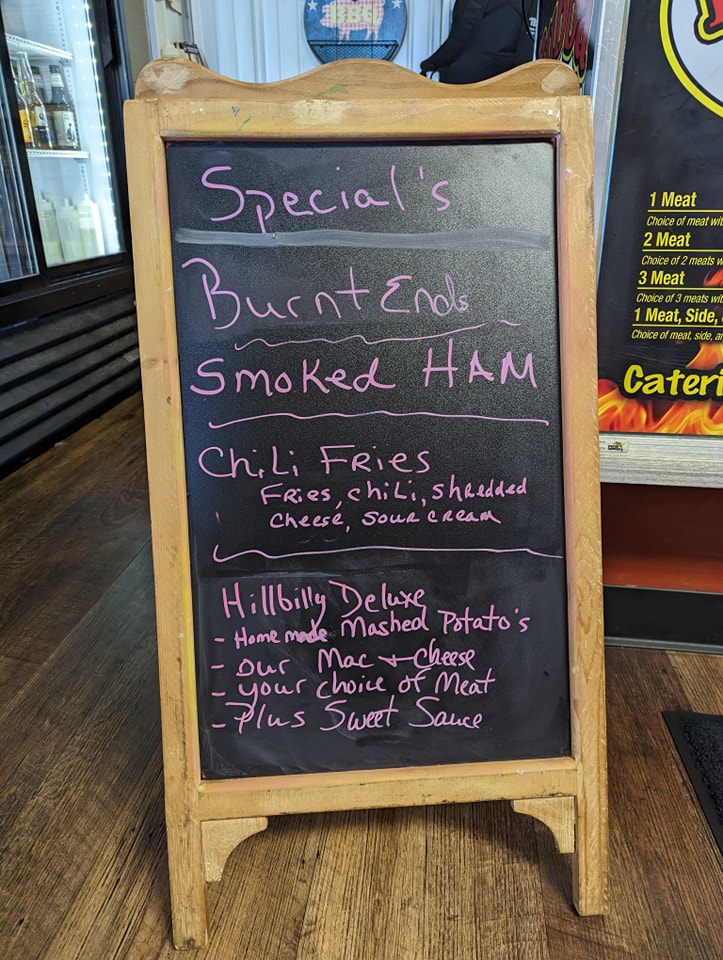 BBQ
Special's
Burnt Ends
Smoked HAM
Chili Fries
Fries, chili, shredded
cheese, sour cream
Hillbilly Deluxe
- Home made Mashed Potato's
- our Mac + Cheese
- your choice of Meat
- Plus Sweet Sauce
1 Meat
Choice of meat
2 Meat
Choice of 2 meats
3 Meat
Choice of 3 meats
1 Meat, Side,
Choice of meat, side,